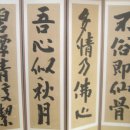 不俗即仙骨
多情乃佛心
吾心似秋月
碧潭清皎潔